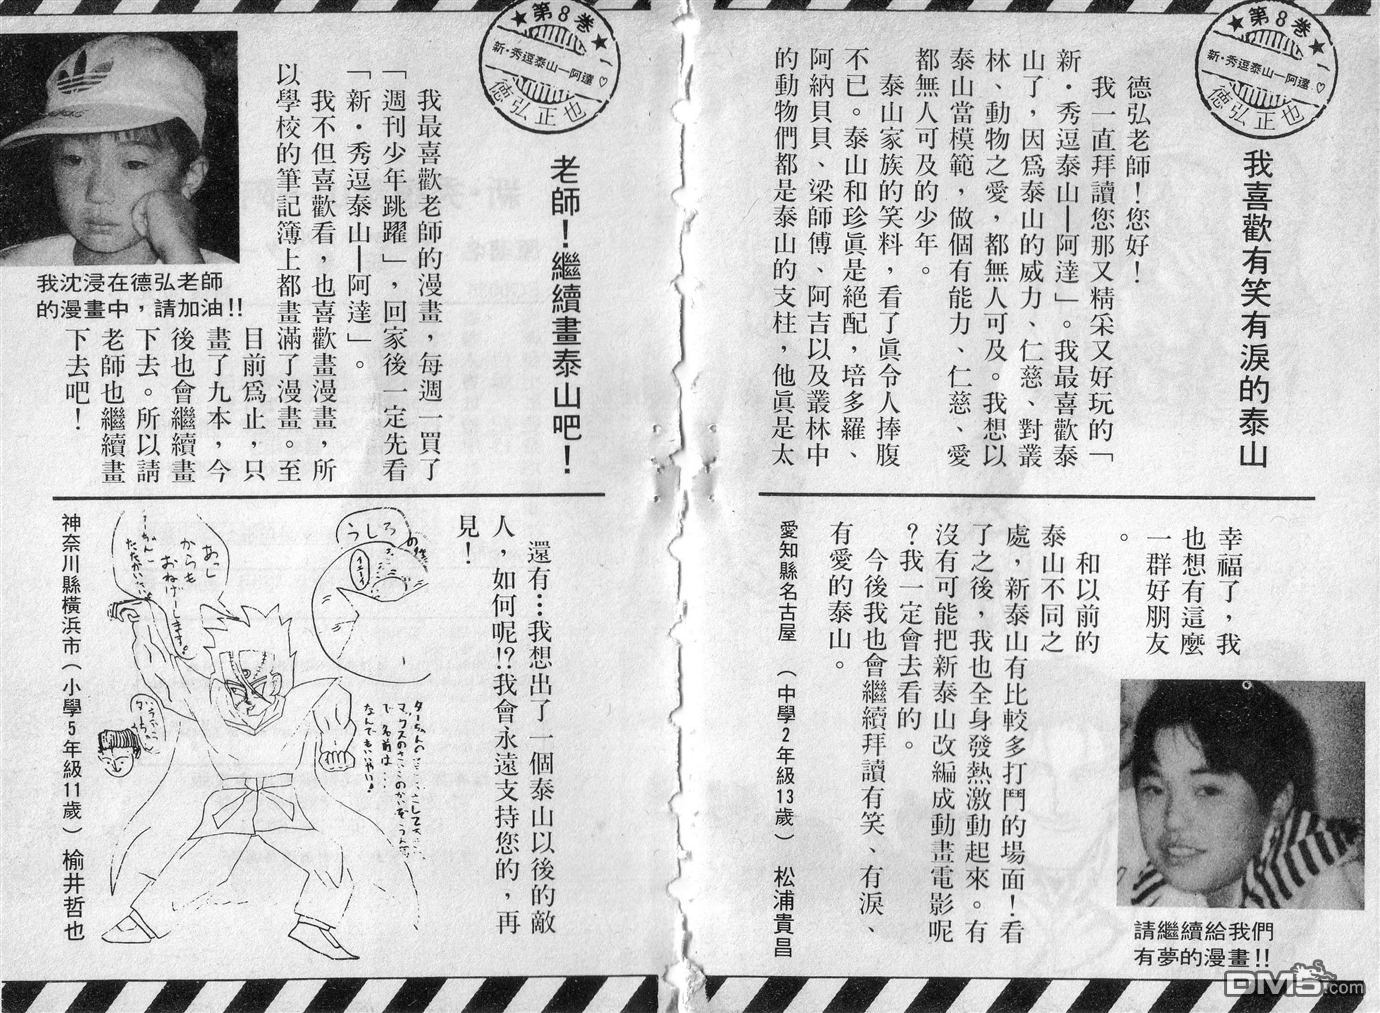 ★第8巻★
新・秀逗泰山—阿達♡
德弘正也
我喜歡有笑有淚的泰山
德弘老師！您好！
我一直拜讀您那又精采又好玩的「
新・秀逗泰山—阿達」。我最喜歡泰
山了，因為泰山的威力、仁慈、對叢
林、動物之愛，都無人可及。我想以
泰山當模範，做個有能力、仁慈、愛
都無人可及的少年。
泰山家族的笑料，看了眞令人捧腹
不已。泰山和珍眞是絕配，培多羅、
阿納貝貝、梁師傅、阿吉以及叢林中
的動物們都是泰山的支柱，他眞是太
幸福了，我
也想有這麼
一群好朋友
。
和以前的
泰山不同之
處，新泰山有比較多打鬥的場面！看
了之後，我也全身發熱激動起來。有
沒有可能把新泰山改編成動畫電影呢
？我一定會去看的。
今後我也會繼續拜讀有笑、有淚、
有愛的泰山。
愛知縣名古屋（中學2年級13歲）松浦貴昌
請繼續給我們
有夢的漫畫!!
★第8巻★
新・秀逗泰山—阿達♡
德弘正也
老師！繼續畫泰山吧！
我最喜歡老師的漫畫，每週一買了
「週刊少年跳躍」，回家後一定先看
「新・秀逗泰山—阿達」。
我不但喜歡看，也喜歡畫漫畫，所
以學校的筆記簿上都畫滿了漫畫。至
目前為止，只
畫了九本，今
後也會繼續畫
下去。所以請
老師也繼續畫
下去吧！
我沈浸在德弘老師
的漫畫中，請加油!!
還有…我想出了一個泰山以後的敵
人，如何呢!?我會永遠支持您的，再
見！
うしろ
あっし
からも
おねげーします。
なんでもいいやい!
で名前は…
神奈川縣橫浜市（小學5年級11歲）楡井哲也
DM5.com